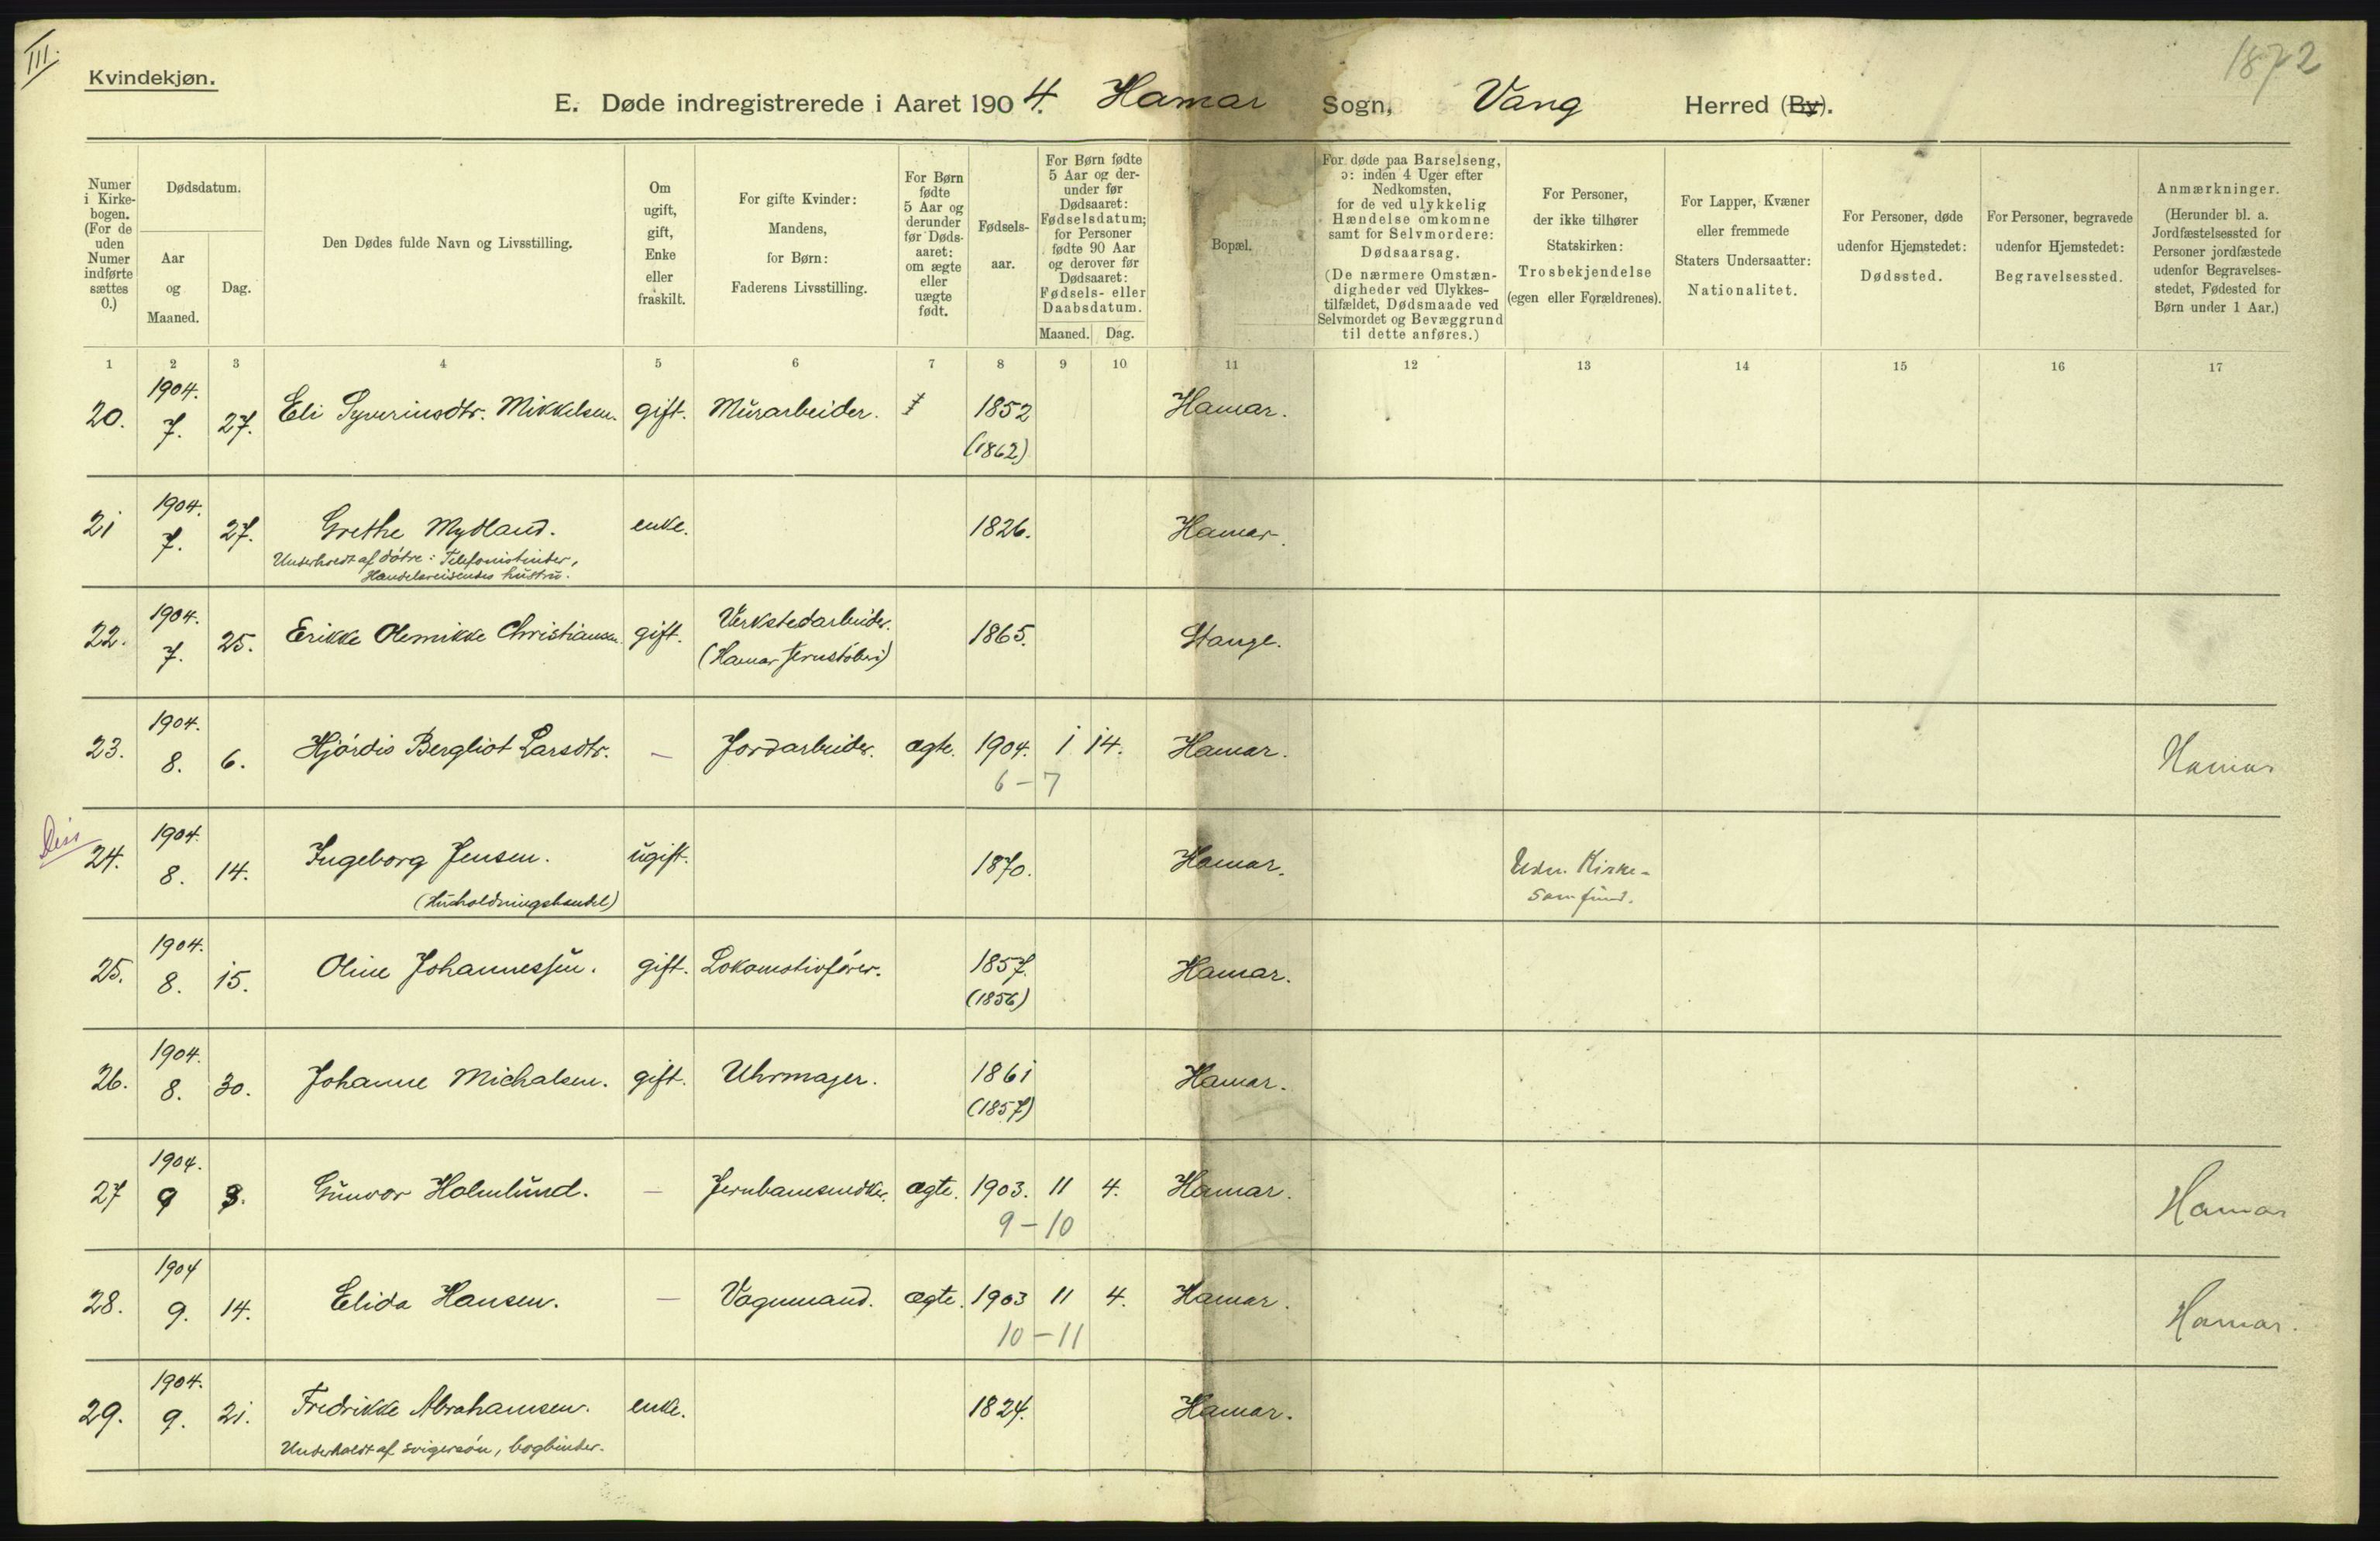 III.
1872
Kvindekjøn.
E. Døde indregistrerede i Aaret 1904. Hamar Sogn, Vang Herred (By).
Numer i Kirke-bogen. (For de uden Numer indførte sættes 0.)
Dødsdatum.
Aar og Maaned.
Dag.
Den Dødes fulde Navn og Livsstilling.
Om ugift, gift, Enke eller fraskilt.
For gifte Kvinder: Mandens, for Børn: Faderens Livsstilling.
For Børn fødte 5 Aar og derunder før Døds-aaret: om ægte eller uægte født.
Fødsels-aar.
For Børn fødte 5 Aar og der-under før Dødsaaret: Fødselsdatum; for Personer fødte 90 Aar og derover før Dødsaaret: Fødsels- eller Daabsdatum.
Maaned. Dag.
Bopæl.
For døde paa Barselseng, ɔ: inden 4 Uger efter Nedkomsten, for de ved ulykkelig Hændelse omkomne samt for Selvmordere: Dødsaarsag. (De nærmere Omstæn-digheder ved Ulykkes-tilfældet, Dødsmaade ved Selvmordet og Bevæggrund til dette anføres.)
For Personer, der ikke tilhører Statskirken: Trosbekjendelse (egen eller Forældrenes).
For Lapper, Kvæner eller fremmede Staters Undersaatter: Nationalitet.
For Personer, døde udenfor Hjemstedet: Dødssted.
For Personer, begravede udenfor Hjemstedet: Begravelsessted.
Anmærkninger. (Herunder bl. a. Jordfæstelsessted for Personer jordfæstede udenfor Begravelses-stedet, Fødested for Børn under 1 Aar.)
1 2 3 4 5 6 7 8 9 10 11 12 13 14 15 16 17
20. 1904. 7. 27. Eli Syverinsdtr. Mikkelsen. gift. Murarbeider. 1852 Hamar.
(1862)
21 1904. 7. 27. Grethe Mydland. enke. 1826. Hamar.
Underholdt af døtre: Telefonistinder,
Handelsreisendes hustru.
22. 1904. 7. 25. Erikke Olemikke Christiansen. gift. Verkstedarbeider. 1865. Stange.
(Hamar Jernstøberi)
23. 1904. 8. 6. Hjørdis Bergliot Larsdtr. — Jordarbeider. ægte. 1904. 1 14. Hamar. Hamar
6 – 7
Diss
24. 1904. 8. 14. Ingeborg Jensen. ugift. 1870. Hamar. Uden. Kirke-
(Husholdningshandel) samfund.
25. 1904. 8. 15. Oline Johannessen. gift. Lokomotivfører. 1857. Hamar.
(1856)
26. 1904. 8. 30. Johanne Michalsen. gift. Uhrmager. 1861 Hamar.
(1857)
27 1904. 9 3. Gunvor Holmlund. — ægte. 1903. 11 4. Hamar. Hamar
9 – 10
28. 1904 9. 14. Elida Hansen. — Vognmand. ægte. 1903 11 4. Hamar. Hamar.
10 – 11
29. 1904. 9. 21. Fredrikke Abrahamsen. enke. 1824. Hamar.
Underholdt af svigersøn, bogbinder.